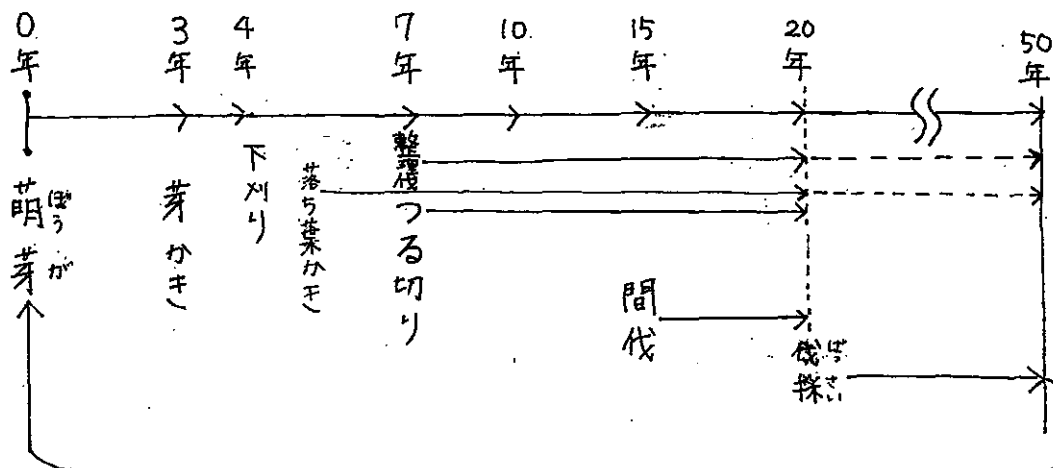 0年
3年
4年
7年
10年
15年
20年
50年
萌芽
ぼうが
芽かき
下刈り
落ち葉かき
整理伐
つる切り
間伐
伐採
ばっさい